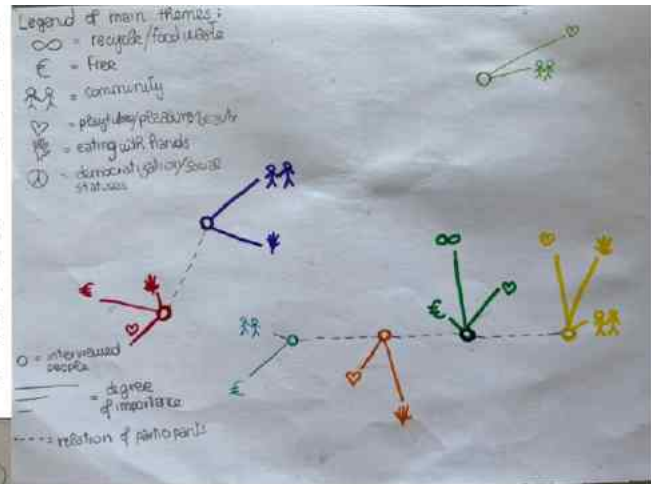 Legend of main themes:
∞ = recycle/food waste
€ = Free
= community
♡ = /pleasure/beauty
= eating with hands
= democratisation/social
statuses
€
€
€
O = interviewed
people
= degree
of importance
---- = relation of participants